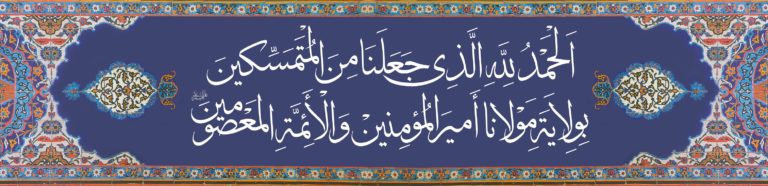 اَلْحَمْدُ لِلّٰهِ الَّذِی جَعَلَنَا مِنَ الْمُتَمَسِّکِینَ
بِوِلَایَةِ مَوْلَانَا أَمِیرِ الْمُؤْمِنِینَ وَالْأَئِمَّةِ الْمَعْصُومِینَ